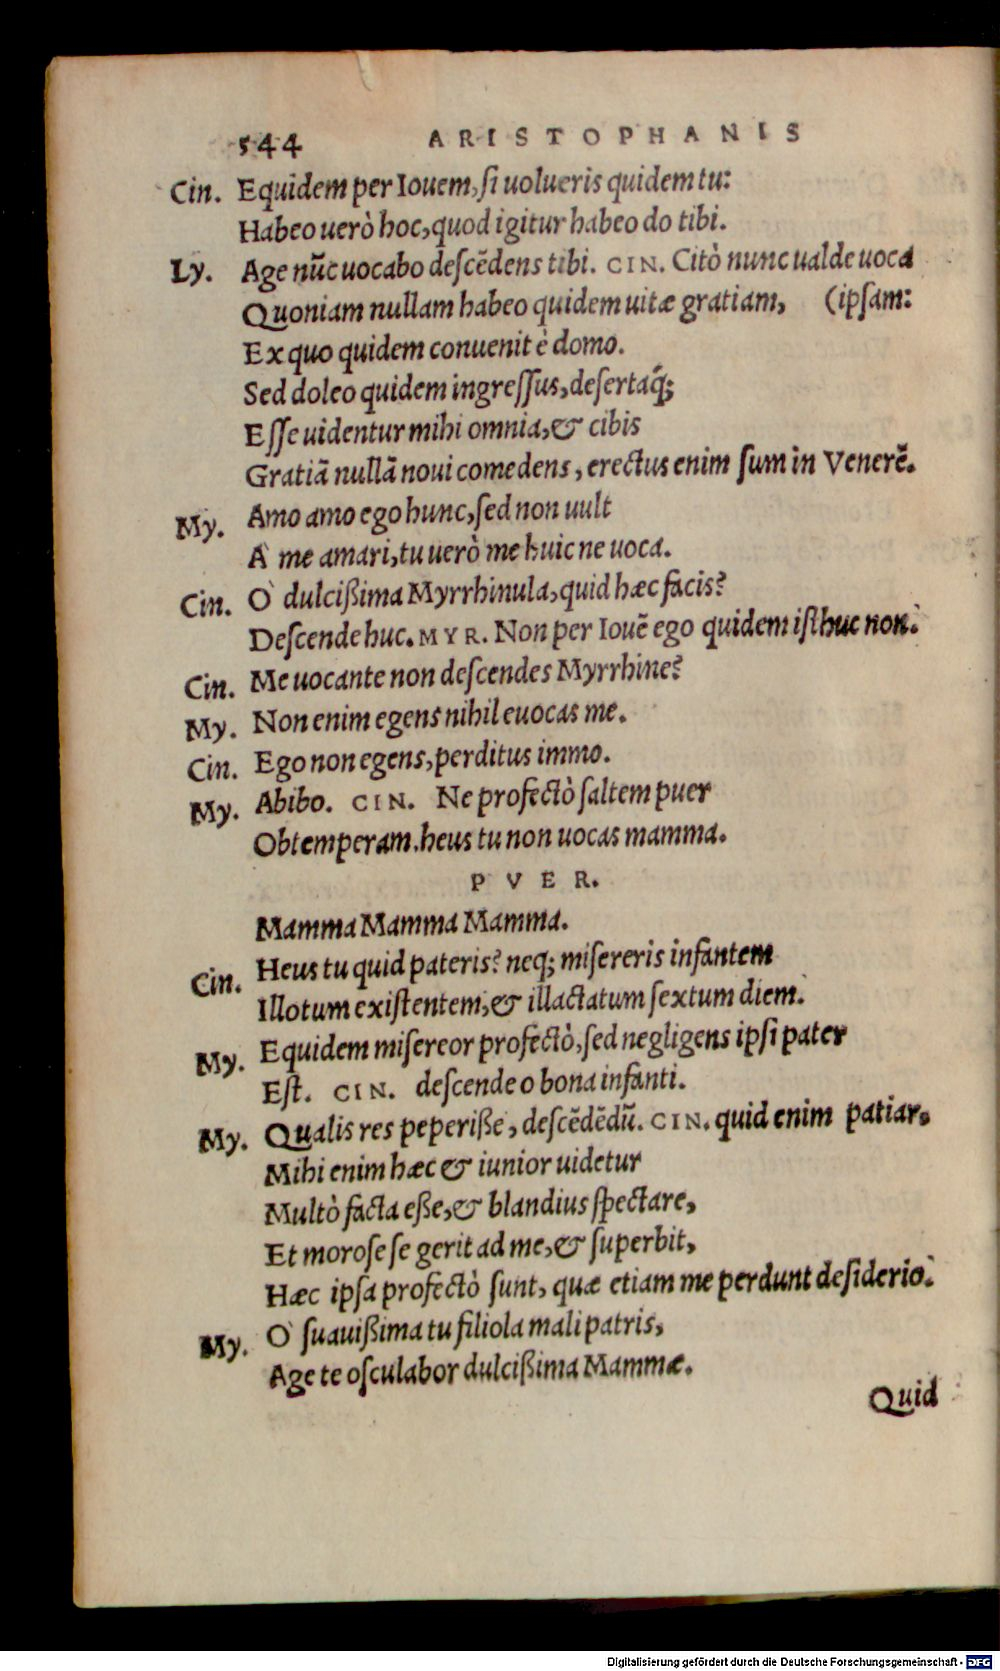 544 ARISTOPHANIS
Cin. Equidem per Iouem, si uolueris quidem tu:
Habeo uerò hoc, quod igitur habeo do tibi.
Ly. Age nūc uocabo descēdens tibi. CIN. Citò nunc ualde uoca
Quoniam nullam habeo quidem uitæ gratiam, (ipsam:
Ex quo quidem conuenit è domo.
Sed doleo quidem ingressus, desertaq́;
Esse uidentur mihi omnia, & cibis
Gratiā nullā noui comedens, erectus enim sum in Venerē.
My. Amo amo ego hunc, sed non uult
A` me amari, tu uerò me huic ne uoca.
Cin. O` dulcißima Myrrhinula, quid hæc facis?
Descende huc. MYR. Non per Iouē ego quidem isthuc non.
Cin. Me uocante non descendes Myrrhine?
My. Non enim egens nihil euocas me.
Cin. Ego non egens, perditus immo.
My. Abibo. CIN. Ne profectò saltem puer
Obtemperam. heus tu non uocas mamma.
PVER.
Mamma Mamma Mamma.
Cin. Heus tu quid pateris? neq; misereris infantem
Illotum existentem, & illactatum sextum diem.
My. Equidem misereor profectò, sed negligens ipsi pater
Est. CIN. descende o bona infanti.
My. Qualis res peperiße, descēdēdū. CIN. quid enim patiar.
Mihi enim hæc & iunior uidetur
Multò facta eße, & blandius spectare,
Et morose se gerit ad me, & superbit,
Hæc ipsa profectò sunt, quæ etiam me perdunt desiderio.
My. O` suauißima tu filiola mali patris,
Age te osculabor dulcißima Mammæ.
Quid
Digitalisierung gefördert durch die Deutsche Forschungsgemeinschaft - DFG